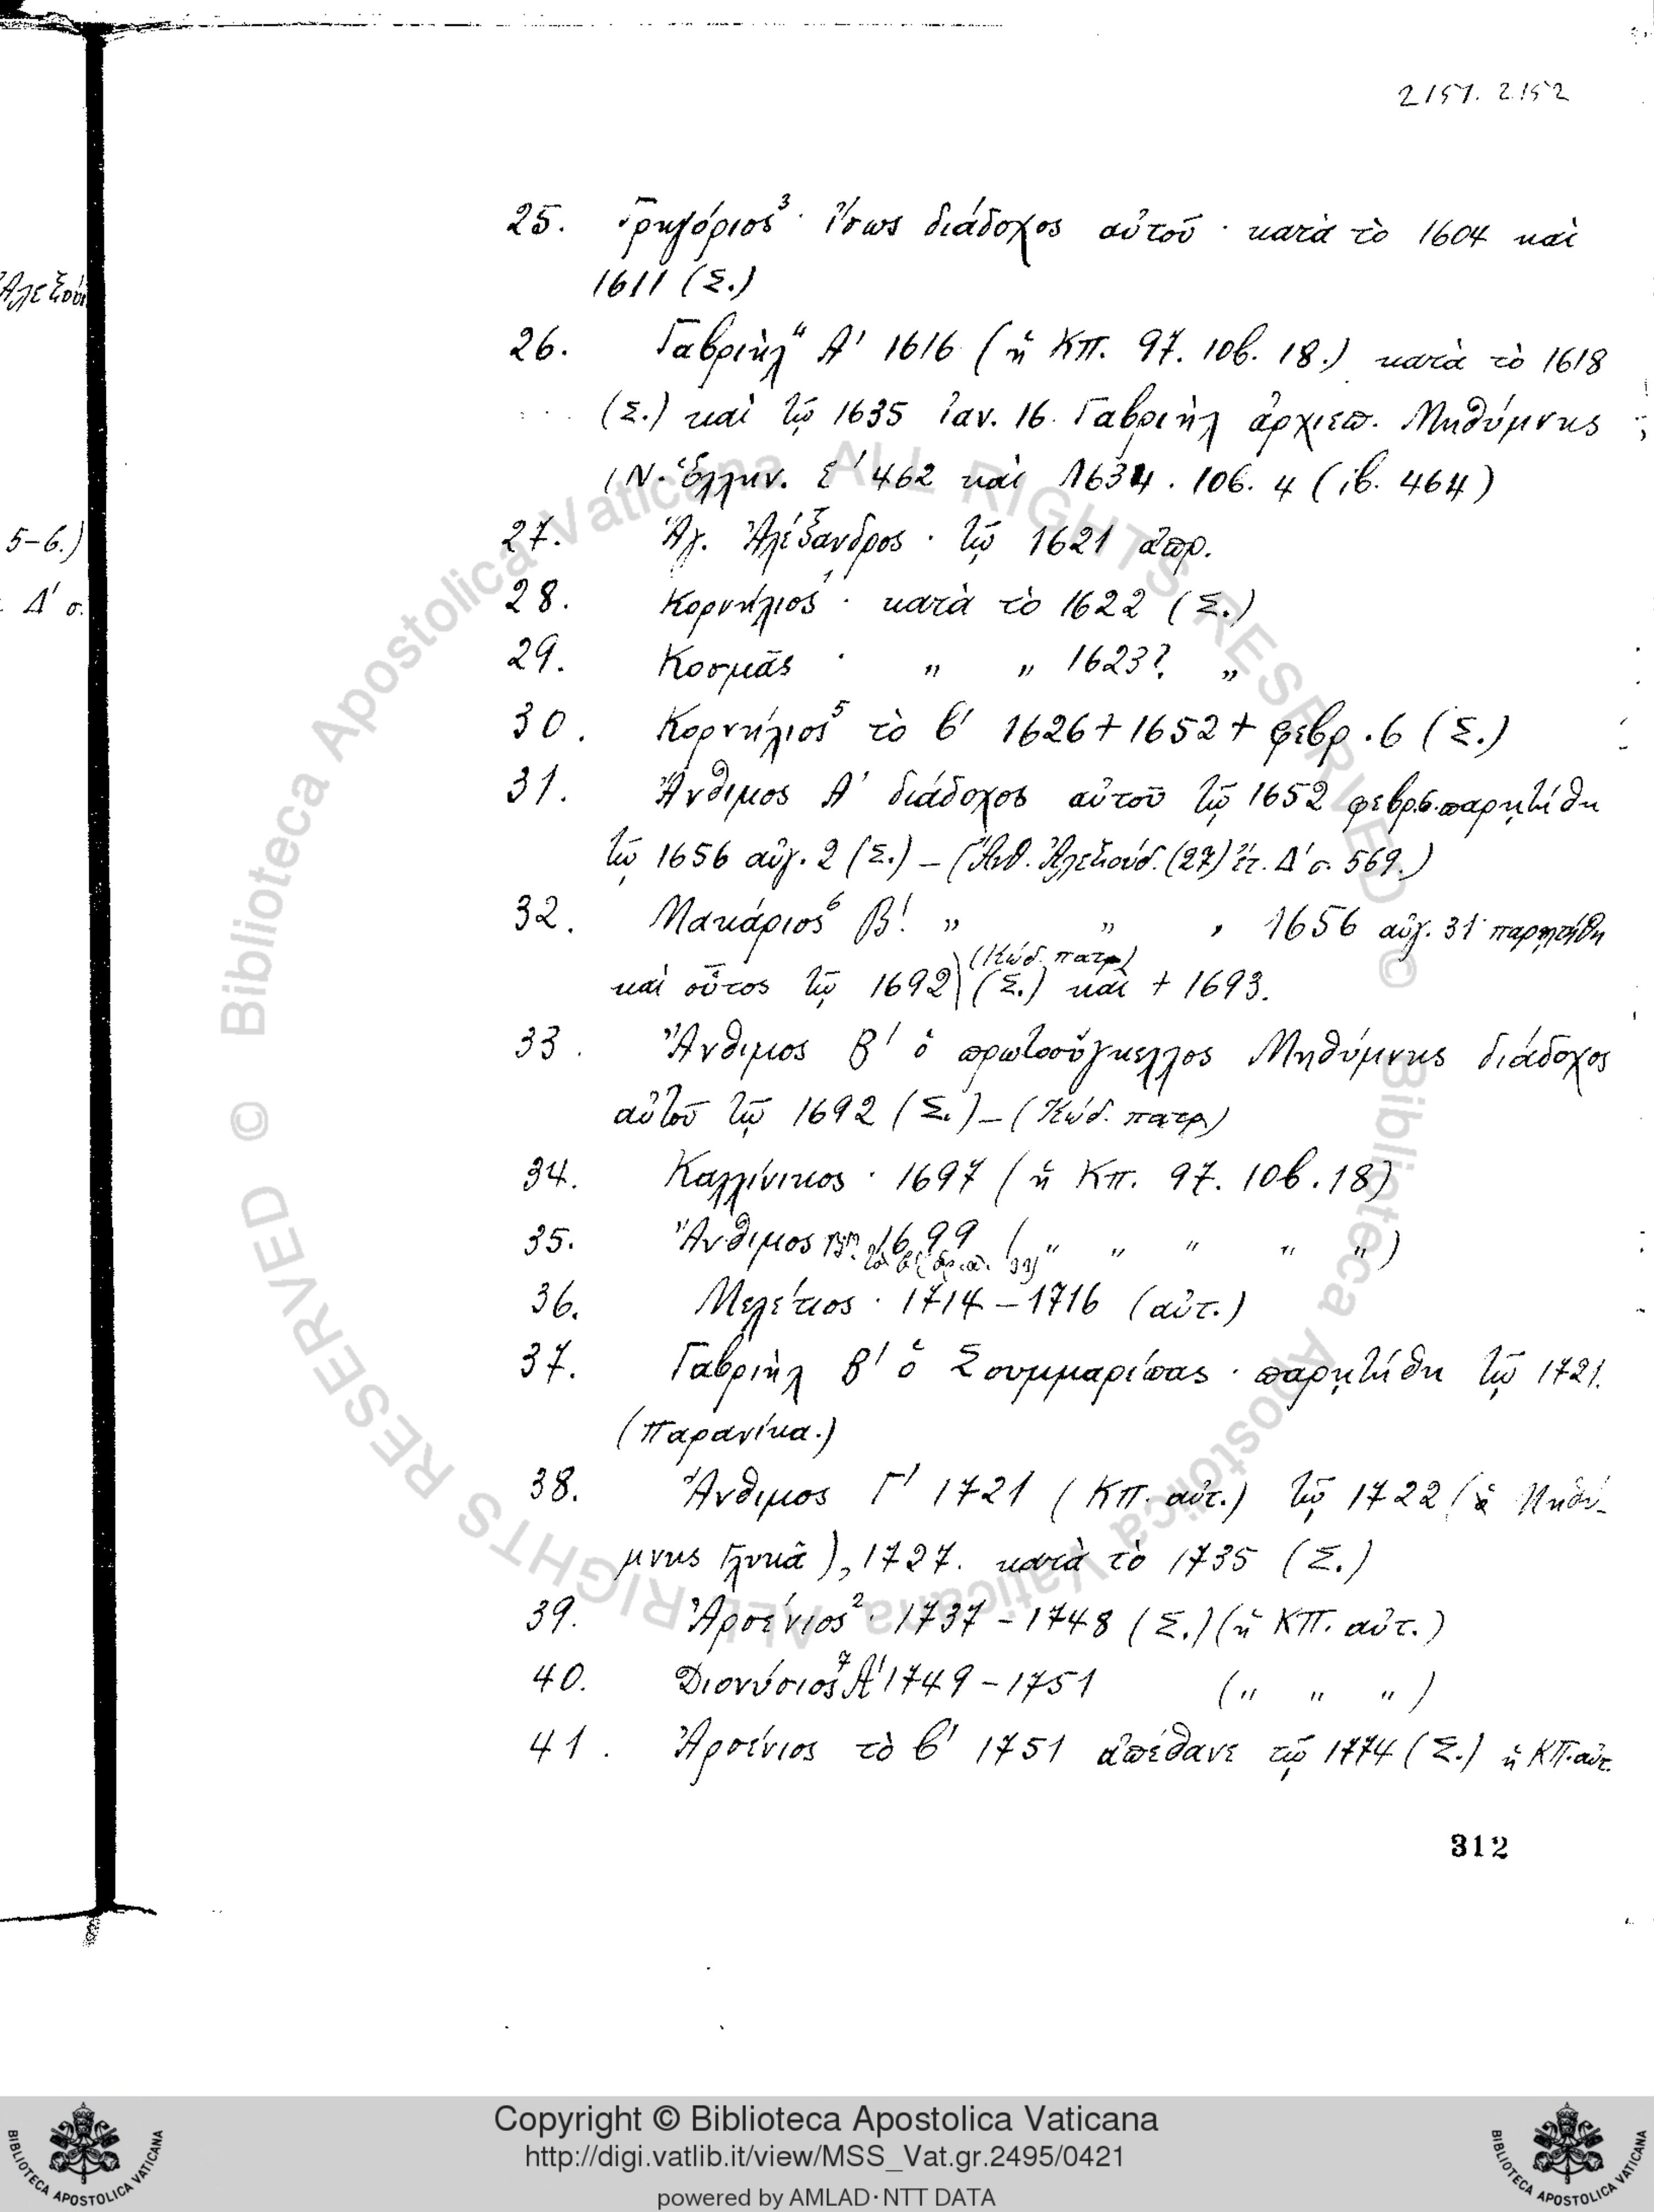 2151. 2152
25. Γρηγόριος³· ἴσως διάδοχος αὐτοῦ· κατὰ τὸ 1604 καὶ
1611 (Σ.)
26. Γαβριὴλ⁴ Α' 1616 (ἡ ΚΠ. 97. 10β. 18.) κατὰ τὸ 1618
(Σ.) καὶ τῷ 1635 ἰαν. 16. Γαβριὴλ ἀρχιεπ. Μηθύμνης
(Ν. Ἑλλην. Ε' 462 καὶ 1634. 10β. 4 (ιβ. 464)
27. Ἁγ. Ἀλέξανδρος· τῷ 1621 ἀπρ.
28. Κορνήλιος¹· κατὰ τὸ 1622 (Σ.)
29. Κοσμᾶς · „ „ 1623? „
30. Κορνήλιος⁵ τὸ β' 1626 + 1652 + φεβρ. 6 (Σ.)
31. Ἄνθιμος Α' διάδοχος αὐτοῦ τῷ 1652 φεβρ. 6. παρῃτήθη
τῷ 1656 αὐγ. 2 (Σ.) – (Ἄνθ. Ἀλεξούδ. (27) ἔτ. Δ' σ. 569.)
32. Μακάριος⁶ Β'. „ „ , 1656 αὐγ. 31· παρῃτήθη
(Κώδ. πατρ)
καὶ οὗτος τῷ 1692 (Σ.) καὶ + 1693.
33. Ἄνθιμος Β' ὁ πρωτοσύγκελλος Μηθύμνης διάδοχος
αὐτοῦ τῷ 1692 (Σ.) – (Κώδ. πατρ)
34. Καλλίνικος· 1697 (ἡ Κπ. 97. 10β. 18)
35. Ἄνθιμος 1699 ( „ „ „ „ „ )
36. Μελέτιος· 1714 – 1716 (αὐτ.)
37. Γαβριὴλ Β' ὁ Σουμμαρίπας· παρῃτήθη τῷ 1721.
(Παρανίκα.)
38. Ἄνθιμος Γ' 1721 (ΚΠ. αὐτ.) τῷ 1722 (ὁ Μηθύ-
μνης Γλυκᾶ), 1727. κατὰ τὸ 1735 (Σ.)
39. Ἀρσένιος²· 1737 – 1748 (Σ.) (ἡ ΚΠ. αὐτ.)
40. Διονύσιος⁷ Α' 1749 – 1751 ( „ „ „ )
41. Ἀρσένιος τὸ β' 1751 ἀπέθανε τῷ 1774 (Σ.) ἡ ΚΠ. αὐτ.
312
5-6.)
Δ' σ.
© Biblioteca Apostolica Vaticana ALL RIGHTS RESERVED
© Biblioteca Apostolica Vaticana ALL RIGHTS RESERVED
Copyright © Biblioteca Apostolica Vaticana
http://digi.vatlib.it/view/MSS_Vat.gr.2495/0421
powered by AMLAD·NTT DATA
BIBLIOTECA APOSTOLICA VATICANA
BIBLIOTECA APOSTOLICA VATICANA